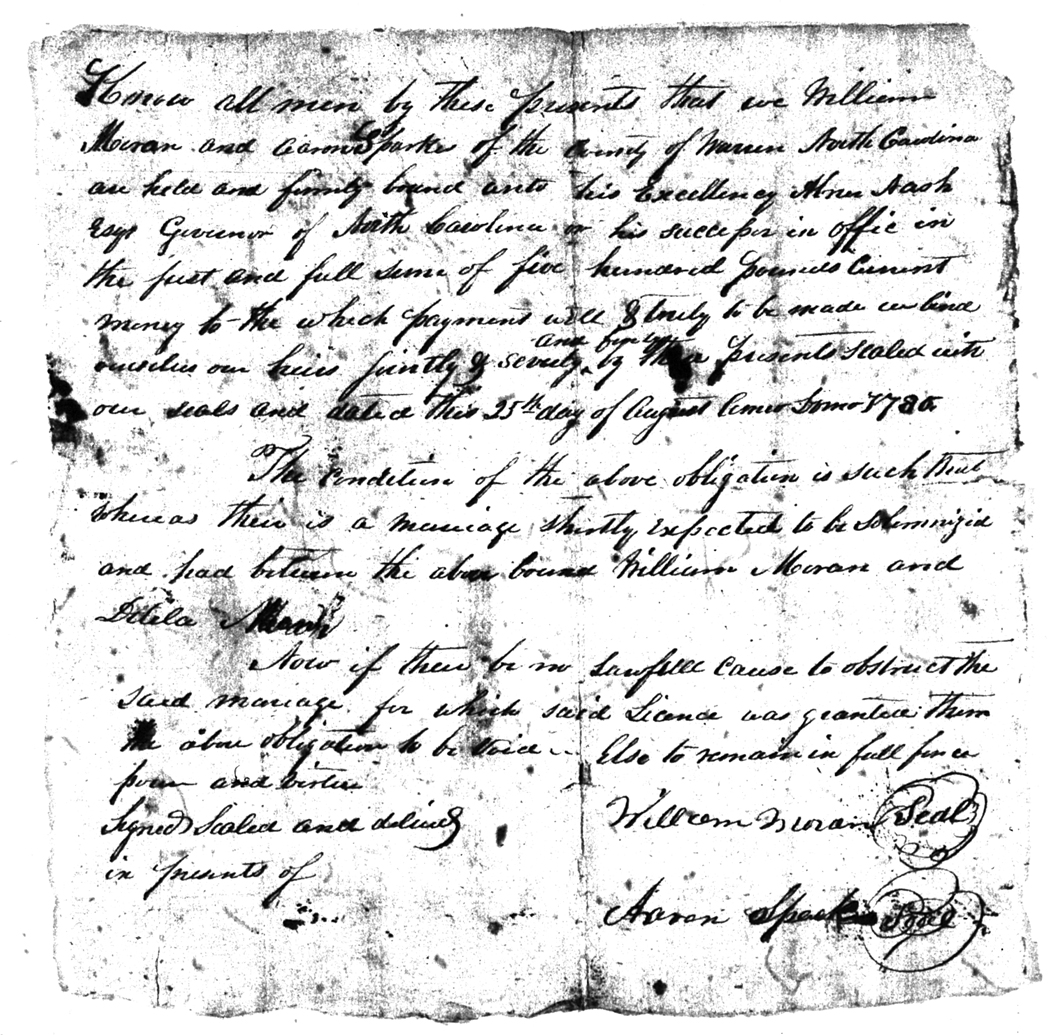 Know all men by these presents that we William
Moran and Aaron Sparks of the County of Warren North Carolina
are held and firmly bound unto his Excellency Abner Nash
Esqr Governor of North Carolina or his successor in office in
the just and full sum of five hundred pounds Current
money to the which payment well & truly to be made we bind
ourselves our heirs jointly & severly by these presents sealed with
and firmly
our seals and dated this 25th day of August Anno Domo 1780
The Condition of the above obligation is such that
whereas their is a marriage shortly expected to be solemnizid
and had between the above bound William Moran and
Delila
Now if their be no Lawfull cause to obstruct the
said marriage for which said Licence was granted them
the above obligation to be void Else to remain in full force
power and virtue
Signed Sealed and deliverd
in presents of
William Moran Seal
Aaron Spark Seal